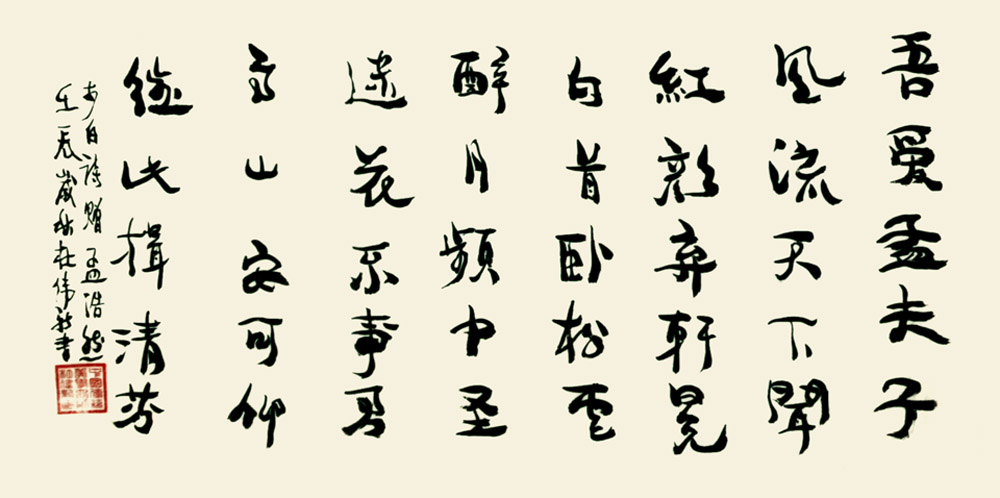 吾爱孟夫子
風流天下聞
紅颜弃軒冕
白首卧松雲
醉月頻中圣
迷花不事君
高山安可仰
徒此揖清芬
李白詩贈孟浩然
壬辰歲秋